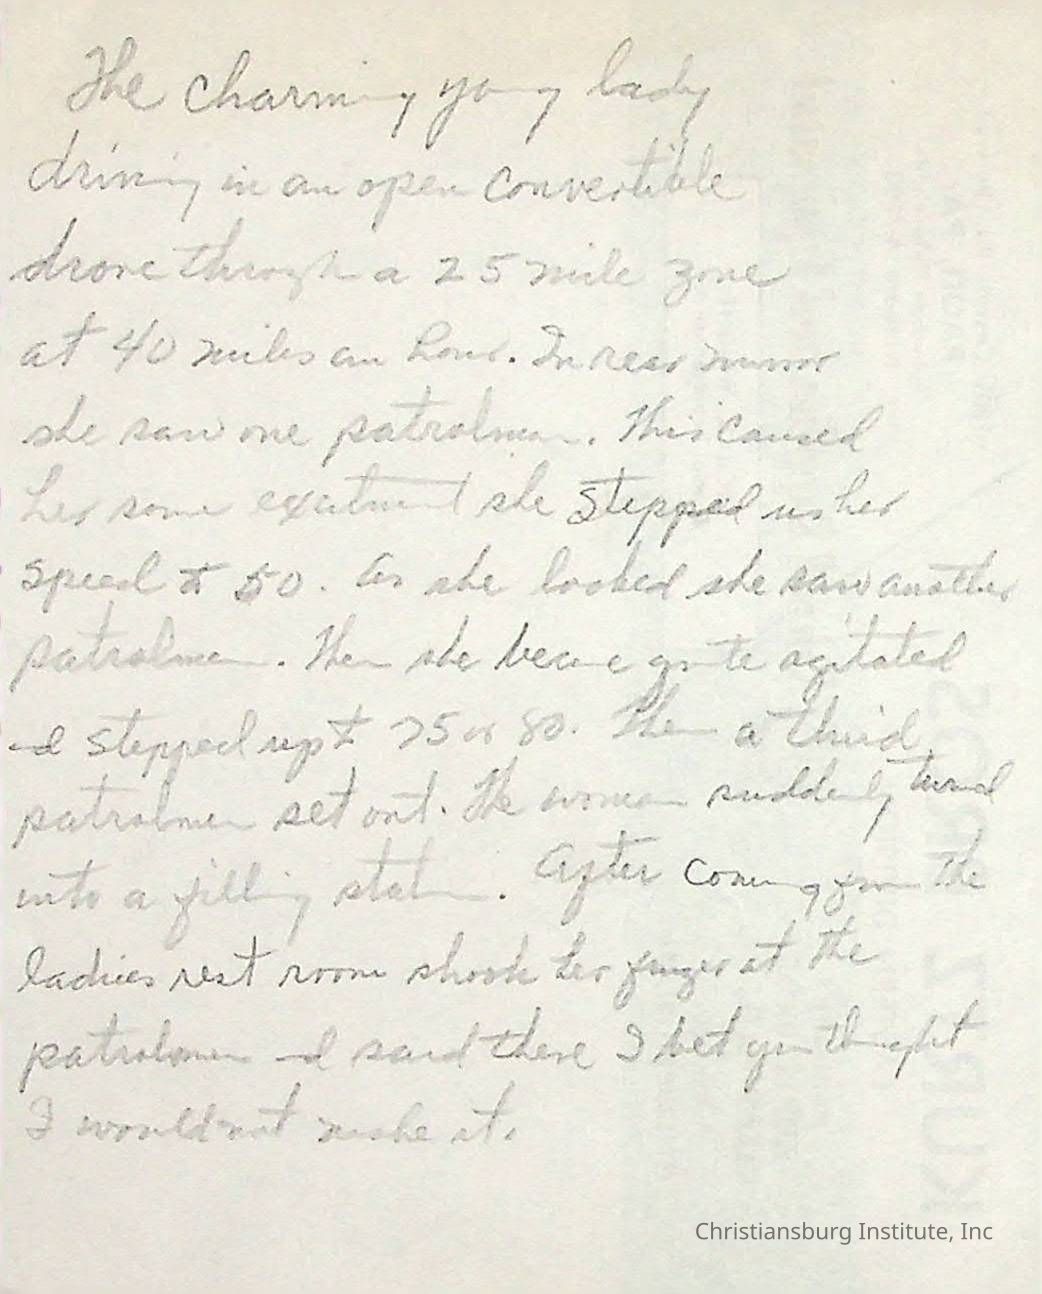 The charming young lady
driving in an open convertible
drove through a 25 mile zone
at 40 miles an hour. In rear mirror
she saw one patrolman. This caused
her some excitment she stepped up her
speed to 50. As she looked she saw another
patrolman. Then she became quite agitated
and stepped up to 75 or 80. Then a third
patrolman set out. The woman suddenly turned
into a filling station. After coming from the
ladies rest room shook her finger at the
patrolman and said there I bet you thought
I would not make it.
Christiansburg Institute, Inc